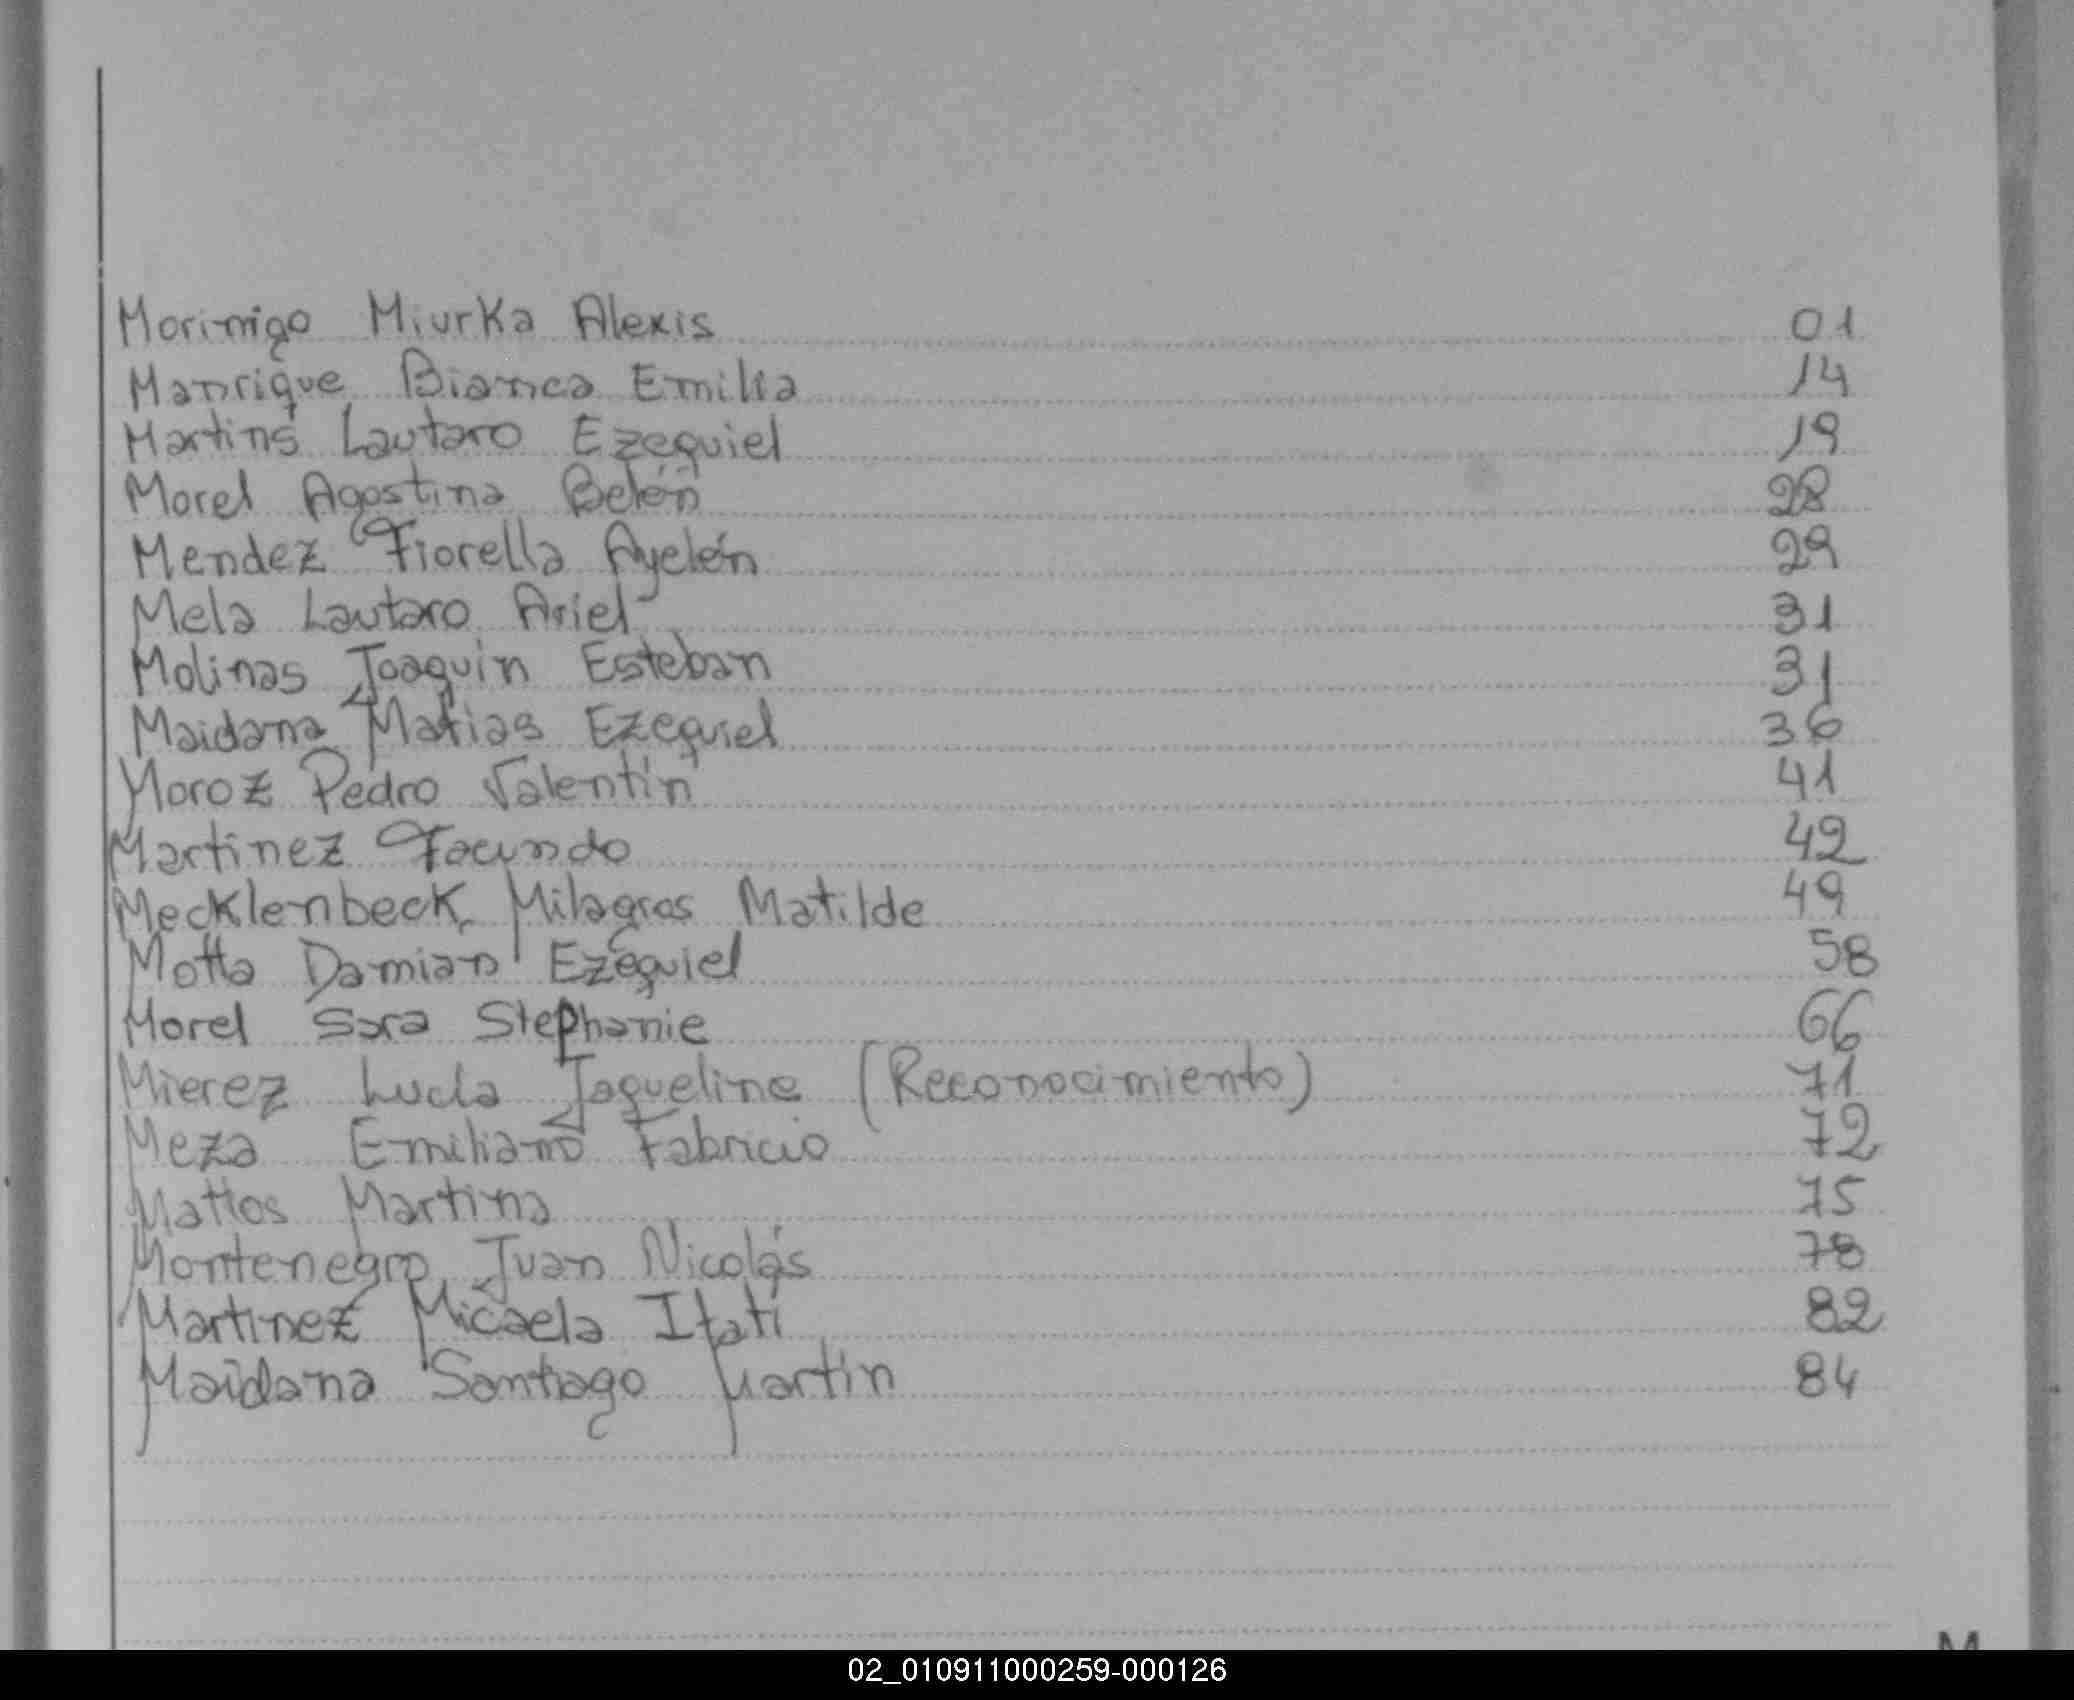 Morinigo Miurka Alexis 01
Manrique Bianca Emilia 14
Martins Lautaro Ezequiel 19
Morel Agostina Belén 28
Mendez Fiorella Ayelén 29
Mela Lautaro Ariel 31
Molinas Joaquin Esteban 31
Maidana Matias Ezequiel 36
Moroz Pedro Valentín 41
Martinez Facundo 42
Mecklenbeck Milagros Matilde 49
Motta Damian Ezequiel 58
Morel Sara Stephanie 66
Mierez Lucia Jaqueline (Reconocimiento) 71
Meza Emiliano Fabricio 72
Mattos Martina 75
Montenegro Juan Nicolás 78
Martinez Micaela Itatí 82
Maidana Santiago Martín 84
M
02_010911000259-000126